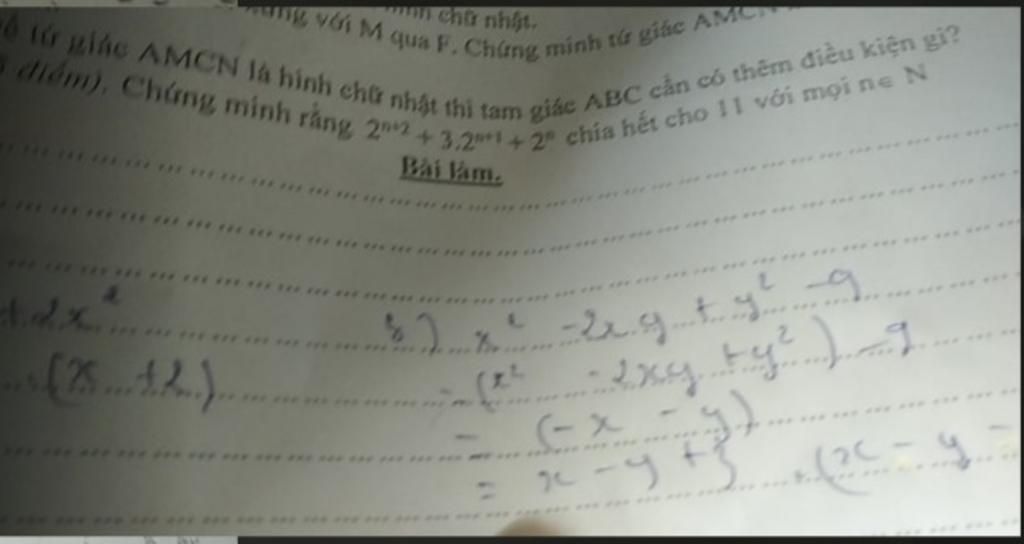 với M qua F. Chứng minh tứ giác
chữ nhật.
tứ giác AMCN là hình chữ nhật thì tam giác ABC cần có thêm điều kiện gì?
điểm). Chứng minh rằng 2ⁿ⁺² + 3.2ⁿ⁺¹ + 2ⁿ chia hết cho 11 với mọi n∈ N
Bài làm.
+2x²
(x +2)
b) x² -2xy + y² -9
= (x² -2xy +y²) -9
= (-x - y)
= x - y + 3 . (x - y -